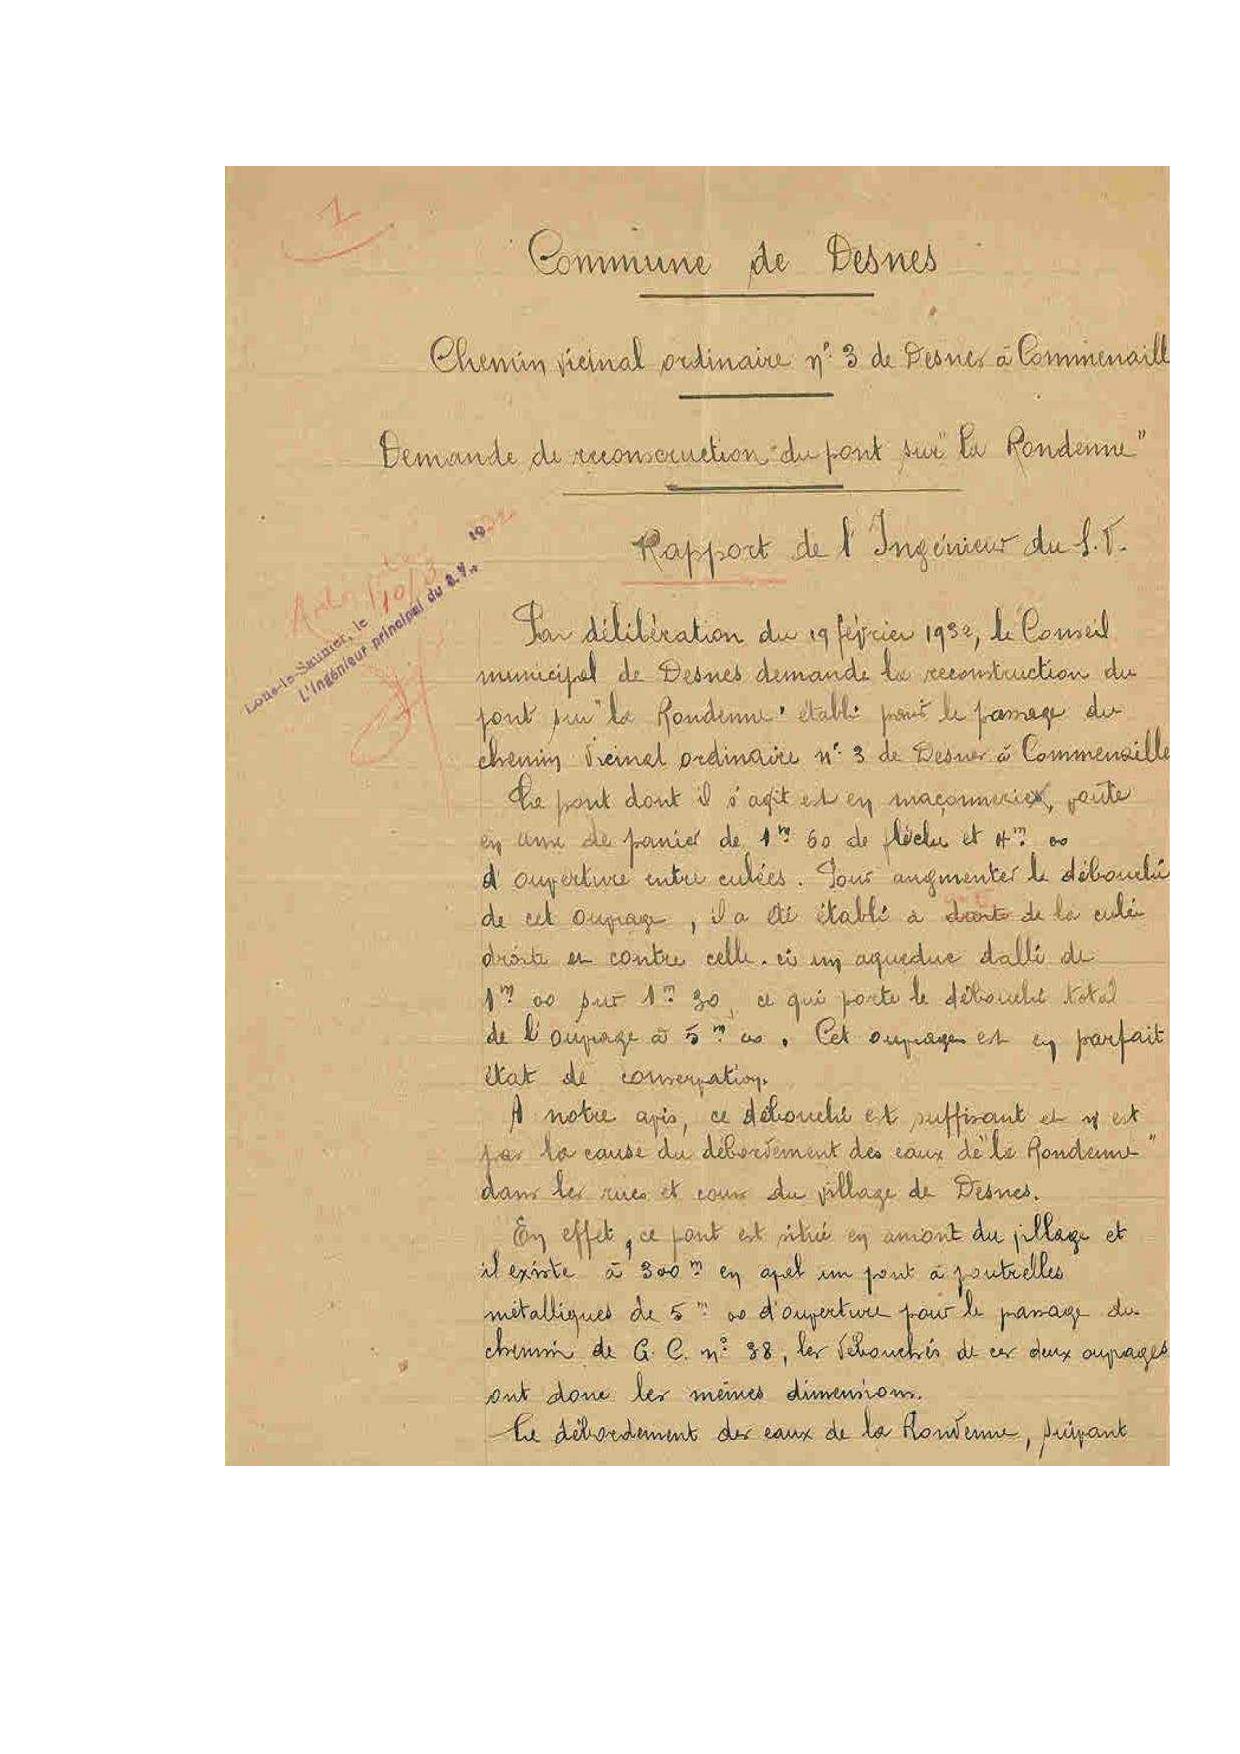 1
Commune de Desnes
Chemin vicinal ordinaire n° 3 de Desnes à Commenaill
Demande de reconstruction du pont sur "la Rondenne"
Rapport de l'Ingénieur du S.V.
Lons-le-Saunier, le 10/3 1932
L'Ingénieur principal du S.V.,
Par délibération du 19 février 1932, le Conseil
municipal de Desnes demande la reconstruction du
pont sur "la Rondenne" établi pour le passage du
chemin vicinal ordinaire n° 3 de Desnes à Commenaille
Le pont dont il s'agit est en maçonnerie, voûte
en anse de panier de 1m 60 de flèche et 4m 00
d'ouverture entre culées. Pour augmenter le débouché
de cet ouvrage, il a été établi à droite de la culée
droite et contre celle-ci un aqueduc dallé de
1m 00 sur 1m 30, ce qui porte le débouché total
de l'ouvrage à 5m 00. Cet ouvrage est en parfait
état de conservation.
A notre avis, ce débouché est suffisant et n'est
pas la cause du débordement des eaux de "la Rondenne"
dans les rues et cours du village de Desnes.
En effet, ce pont est situé en amont du village et
il existe à 300m en aval un pont à poutrelles
métalliques de 5m 00 d'ouverture pour le passage du
chemin de G.C. n° 38, les débouchés de ces deux ouvrages
ont donc les mêmes dimensions.
Le débordement des eaux de la Rondenne, suivant